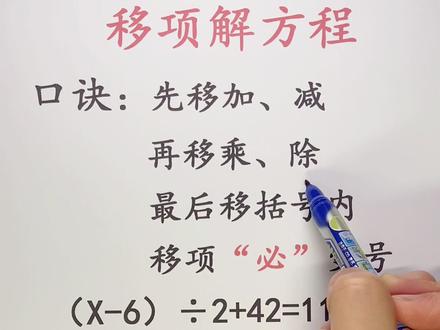 移项解方程
口诀：先移加、减
再移乘、除
最后移括号内
移项“必”变号
（X-6）÷2+42=11